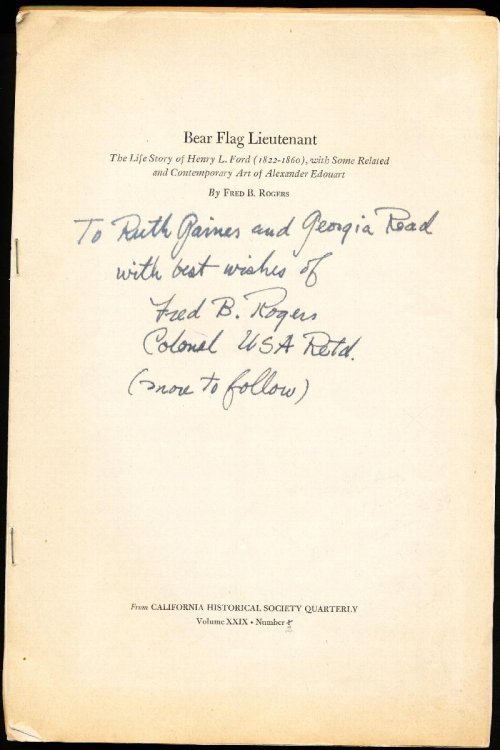 Bear Flag Lieutenant
The Life Story of Henry L. Ford (1822-1860), with Some Related
and Contemporary Art of Alexander Edouart
By FRED B. ROGERS
To Ruth Gaines and Georgia Read
with best wishes of
Fred B. Rogers
Colonel USA Retd.
(more to follow)
From CALIFORNIA HISTORICAL SOCIETY QUARTERLY
Volume XXIX • Number
2